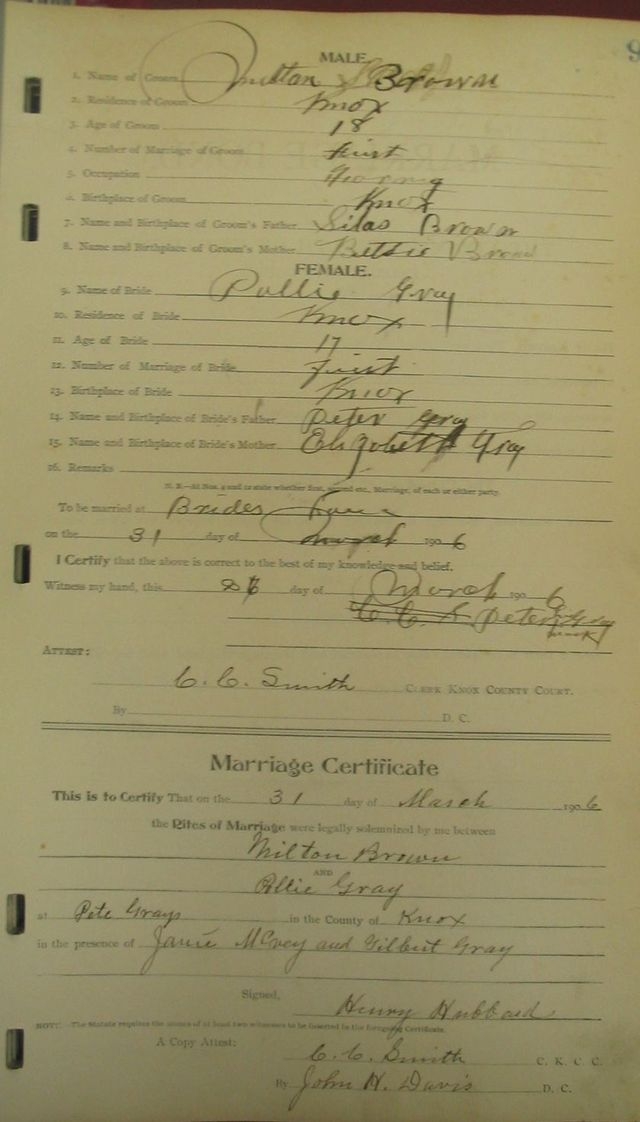 9
MALE.
1. Name of Groom Milton Brown
2. Residence of Groom Knox
3. Age of Groom 18
4. Number of Marriage of Groom first
5. Occupation
6. Birthplace of Groom Knox
7. Name and Birthplace of Groom's Father Silas Brown
8. Name and Birthplace of Groom's Mother Bettie Brown
FEMALE.
9. Name of Bride Pollie Gray
10. Residence of Bride Knox
11. Age of Bride 17
12. Number of Marriage of Bride first
13. Birthplace of Bride Knox
14. Name and Birthplace of Bride's Father Peter Gray
15. Name and Birthplace of Bride's Mother Elizabeth Gray
16. Remarks
N. B.—At Nos. 4 and 12 state whether first, second etc., Marriage, of each or either party.
To be married at Brides
on the 31 day of March 1906
I Certify that the above is correct to the best of my knowledge and belief.
Witness my hand, this day of March 1906
C. C. S Peter Gray
mark
ATTEST:
C. C. Smith CLERK KNOX COUNTY COURT.
By D. C.
Marriage Certificate
This is to Certify That on the 31 day of March 1906
the Rites of Marriage were legally solemnized by me between
Milton Brown
AND
Pollie Gray
at Pete Grays in the County of Knox
in the presence of Janie McVey and Gilbert Gray
Signed, Henry Hubbard
NOTE:—The Statute requires the names of at least two witnesses to be inserted in the foregoing Certificate.
A Copy Attest:
C. C. Smith C. K. C. C.
By John H. Davis D. C.